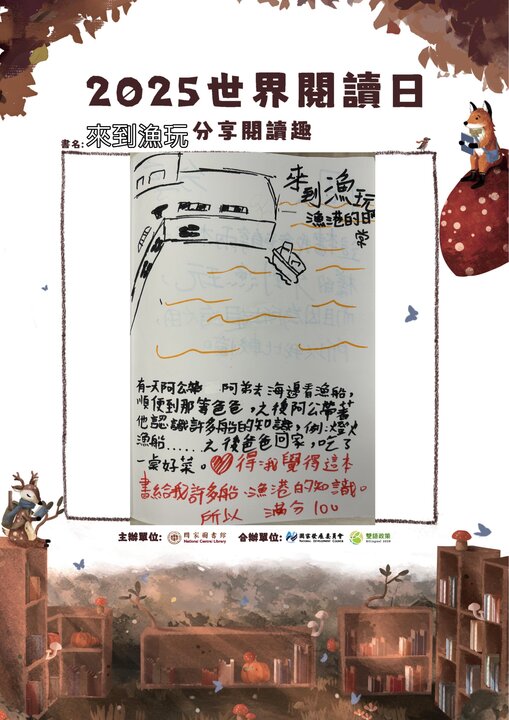 2025世界閱讀日
書名:來到漁玩 分享閱讀趣
來到漁玩
漁港的日常
有一天阿公帶 阿弟去海邊看漁船,
順便到那等爸爸,之後阿公帶著
他認識許多船的知識,例:燈火
漁船......之後爸爸回家,吃了
一桌好菜。得我覺得這本
書給我許多船、漁港的知識。
所以 滿分100
主辦單位: 國家圖書館 National Central Library 合辦單位: 國家發展委員會 NATIONAL DEVELOPMENT COUNCIL 雙語政策 Bilingual 2030